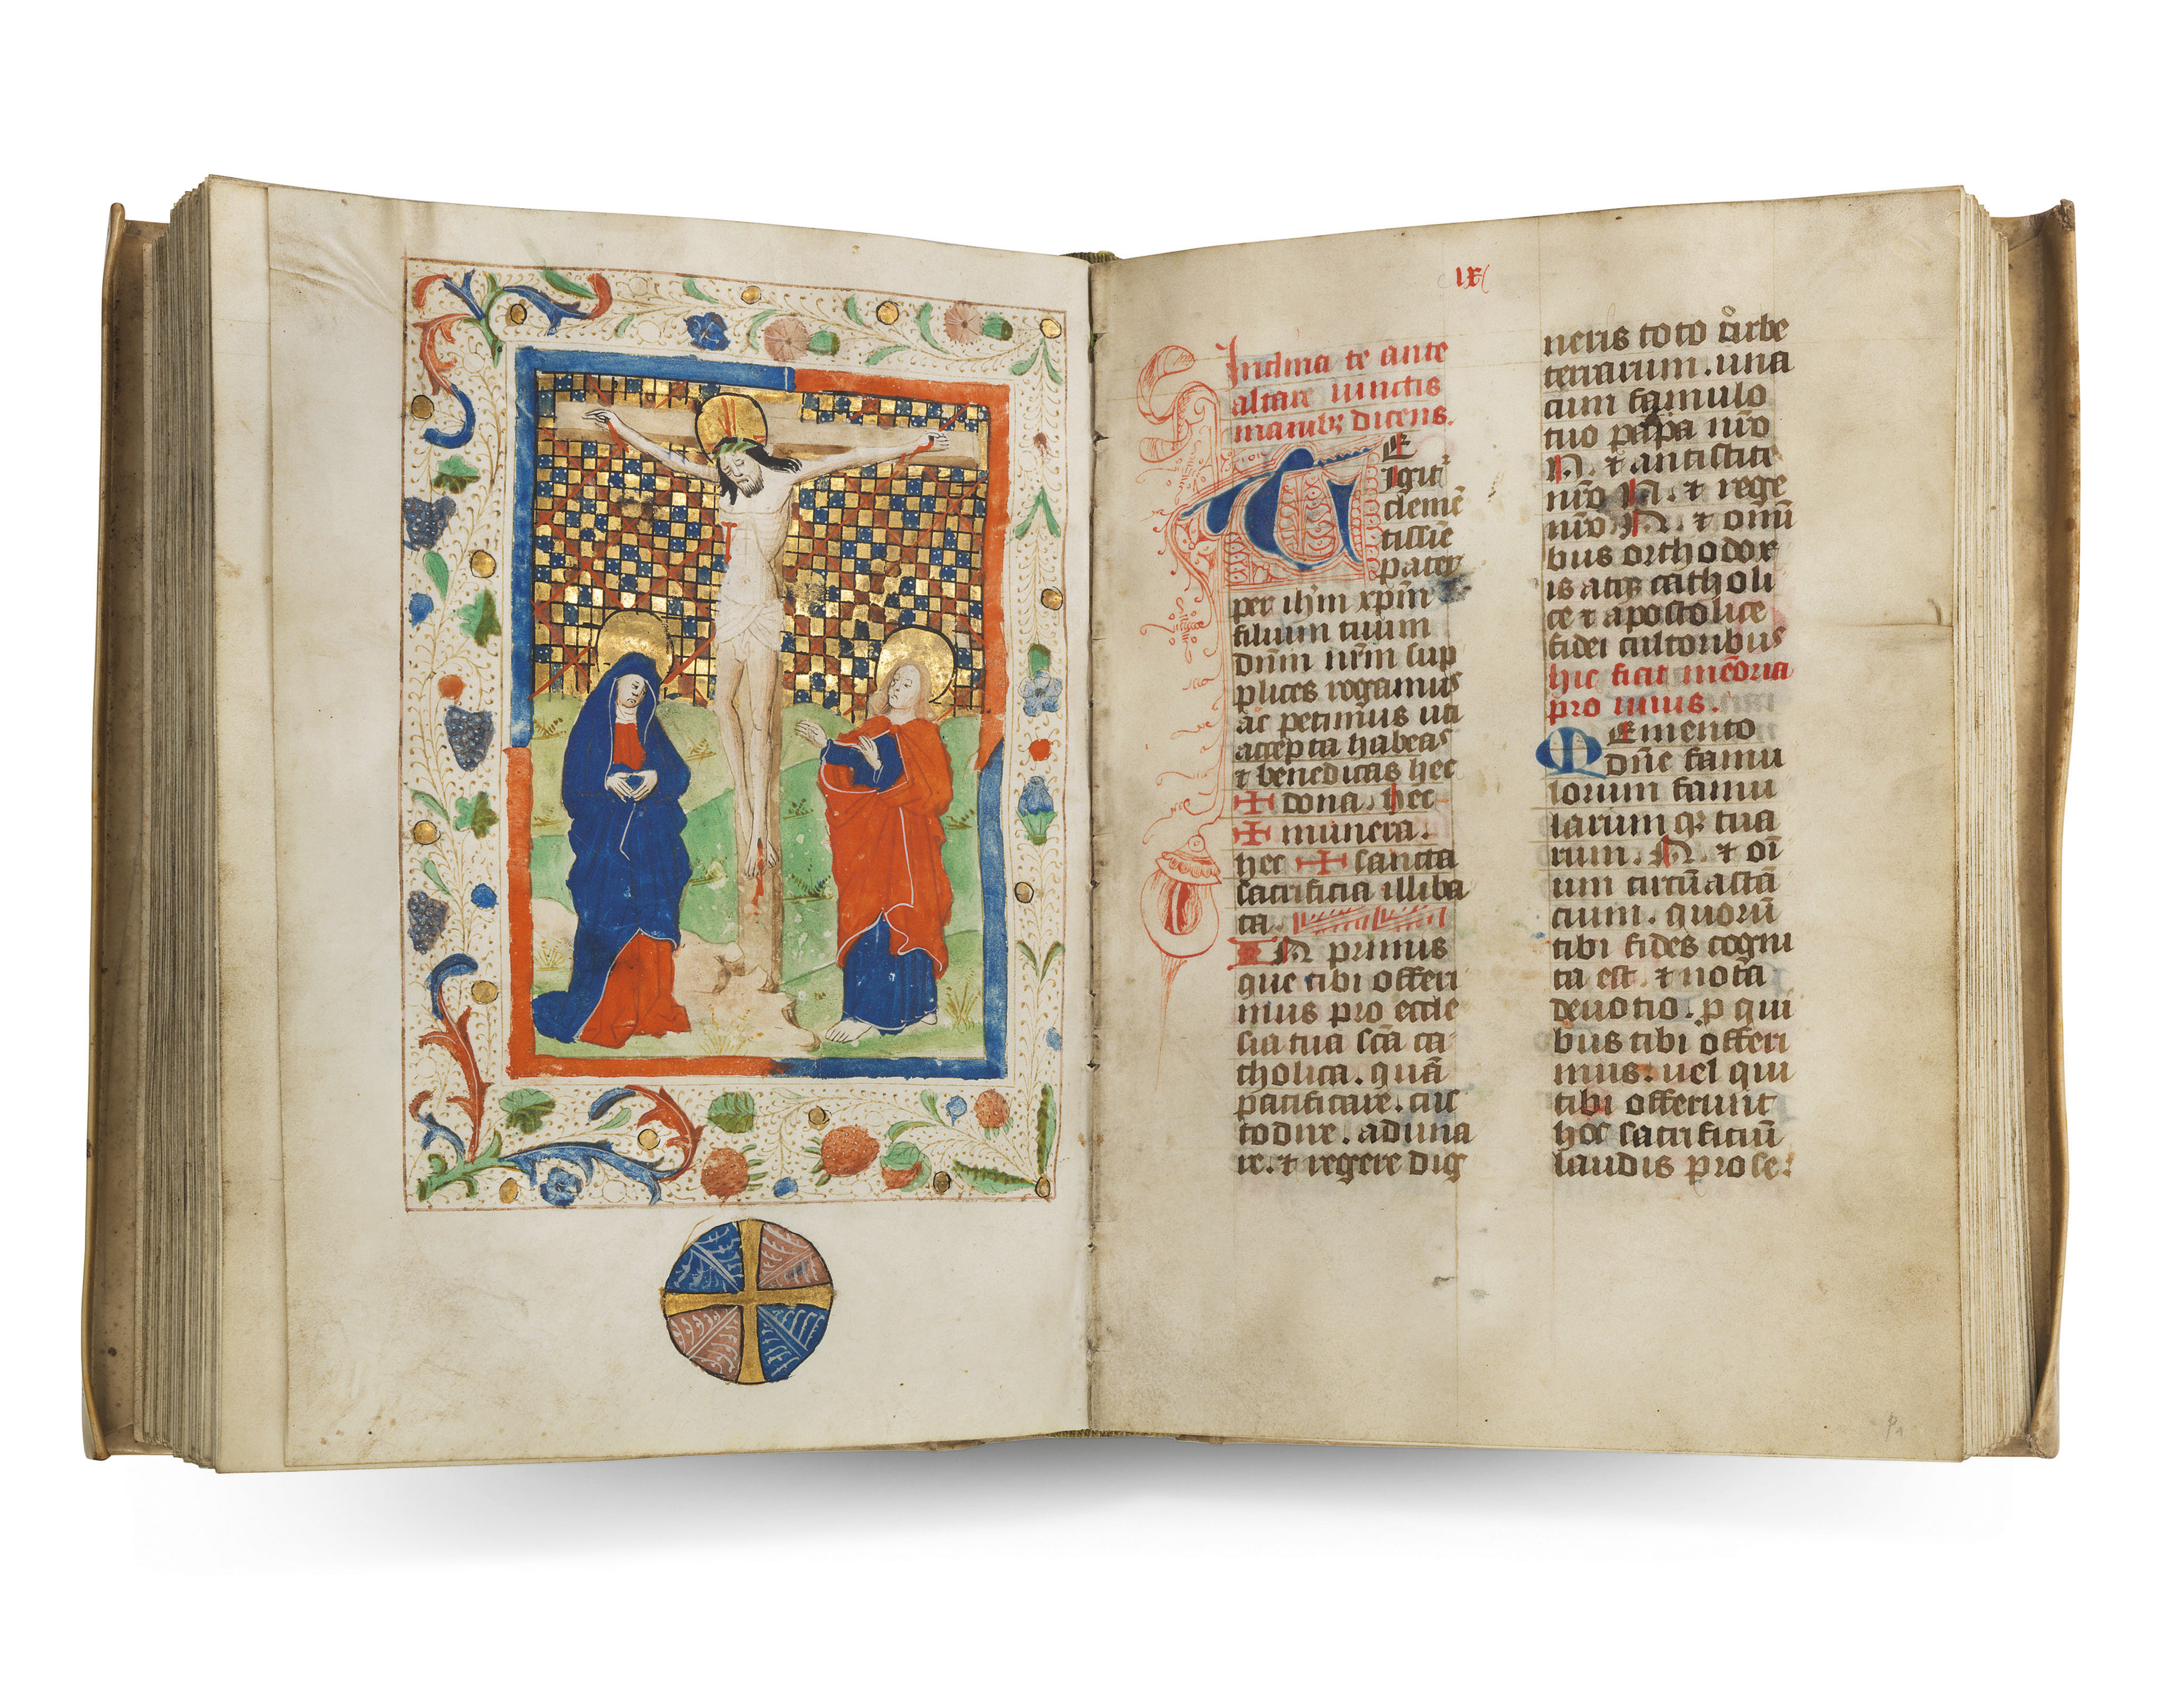 lx
Inclina te ante
altare iunctis
manibꝫ dicens.
TE
igit᷑
clemē
tissīe
pater
per ihm̄ xp̄m
filium tuum
dn̄m nr̄m sup
plices rogamus
ac petimus uti
accepta habeas
⁊ benedicas hec
✠ dona. hec
✠ munera.
hec ✠ sancta
sacrificia illiba
ta.
IN primis
que tibi offeri
mus pro eccle
sia tua sc̄a ca
tholica. quā
pacificare. cus
todire. aduna
re. ⁊ regere dig
neris toto orbe
terrarum. una
cum famulo
tuo papa nr̄o
N. ⁊ antistite
nr̄o N. ⁊ rege
nr̄o N. ⁊ omī
bus orthodox
is atqꝫ catholi
ce ⁊ apostolice
fidei cultoribus
hic fiat mēoria
pro uiuis.
Memento
dn̄e famu
lorum famu
larum qꝫ tua
rum. N. ⁊ oī
um circūastā
cium. quorū
tibi fides cogni
ta est. ⁊ nota
deuotio. ꝓ qui
bus tibi offeri
mus. uel qui
tibi offerunt
hoc sacrificiū
laudis pro se: